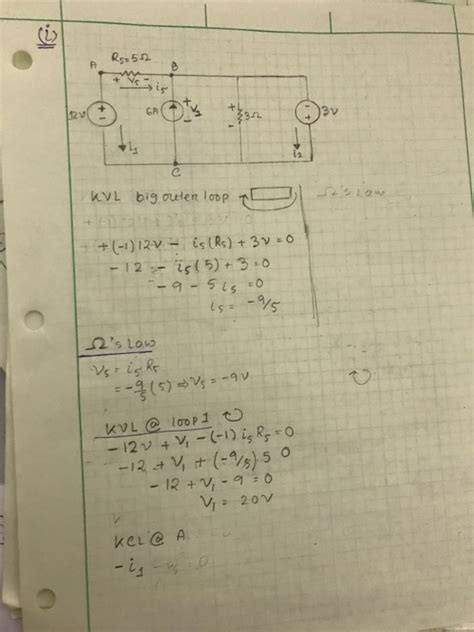 (i)
R5=5Ω
A
B
+ V5 -
i5
12V
+
-
6A
+
V1
-
+
3Ω
-
-
+
3V
i1
i2
C
KVL big outer loop
Ω's Law
+(-1)12V - i5(R5) + 3V = 0
-12 - i5(5) + 3 = 0
-9 - 5i5 = 0
i5 = -9/5
Ω's Law
V5 = i5 R5
= -9/5 (5) ⇒ V5 = -9V
KVL @ loop 1
-12V + V1 - (-1) i5 R5 = 0
-12 + V1 + (-9/5) 5 0
-12 + V1 - 9 = 0
V1 = 20V
KCL @ A
-i1